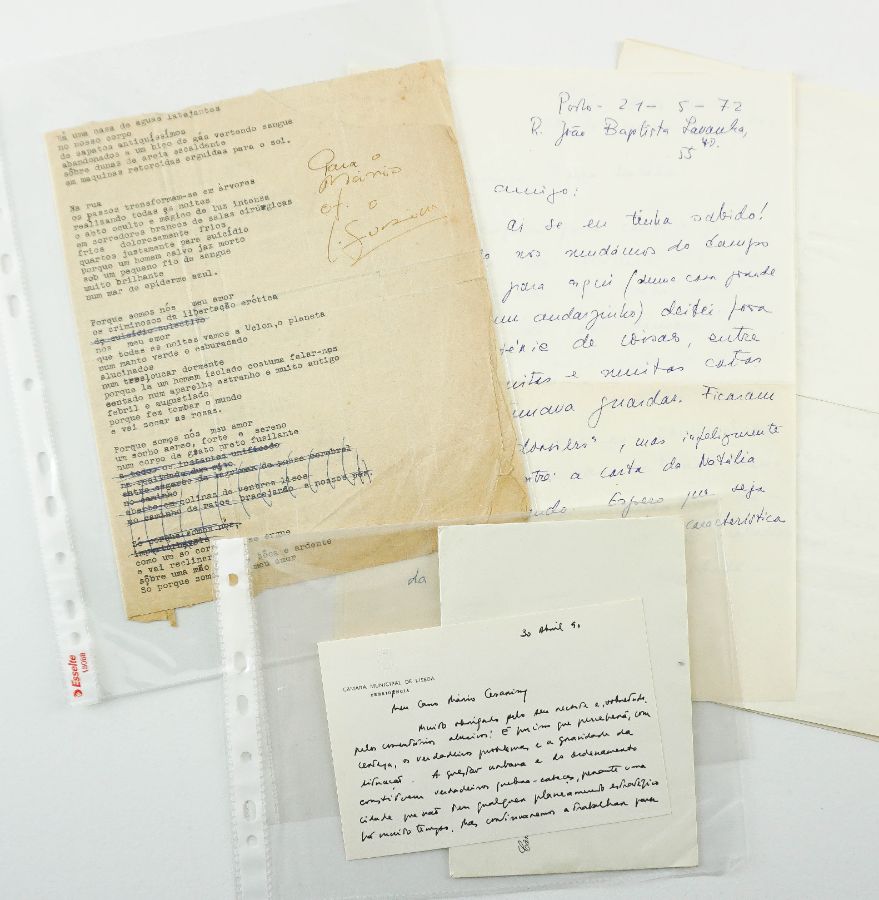 Há uma casa de águas latejantes
no nosso corpo
de sapatos antiquíssimos
abandonados a um bico de gás vertendo sangue
sôbre dunas de areia escaldante
em máquinas retorcidas erguidas para o sol.
Na rua
os passos transformam-se em árvores
realizando todas as noites
o acto oculto e mágico de luz intensa
em corredores brancos de salas cirúrgicas
frios dolorosamente frios
quartos justamente para suicídio
porque um homem salvo jaz morto
sob um pequeno fio de sangue
muito brilhante
num mar de epiderme azul.
Para o
Mário
of. o
Porque somos nós meu amor
os criminosos da libertação erótica
do suicídio colectivo
nós meu amor
que todas as noites vamos a Uelon,o planeta
num manto verde e esburacado
alucinados
num tresloucar dormente
porque lá um homem isolado costuma falar-nos
sentado num aparelho estranho e muito antigo
febril e augustiado
porque fez tombar o mundo
e vai zocar as rosas.
Porque somos nós meu amor
um sonho aereo, forte e sereno
num corpo de gisto preto fusilante
a todos os instantes unificado
na realidade dum
entre
no caminho
em colinas de
no caminho de ratos bracejando a nossos pés.
Só porque somos nós,
como um so cor
e vai reclinar e ardente
sôbre uma mão meu amor
So porque som
Esselte
Porto - 21 - 5 - 72
R. João Baptista Lavanha,
55
amigo:
ai se eu tinha sabido!
nos mudámos do Campo
para aqui (duma casa grande
um andarzinho) deitei fora
série de coisas, entre
muitas e muitas cartas
guardar. Ficaram
"dossiers", mas infelizmente
a carta da Natália
Espero que seja
característica
da
30 Abril 90
CÂMARA MUNICIPAL DE LISBOA
PRESIDÊNCIA
Meu Caro Mário Cesariny
Muito obrigado pelo seu recorte e, sobretudo,
pelos comentários alusivos! É preciso que perceberá, com
certeza, os verdadeiros problemas e a gravidade da
situação. A questão urbana e do ordenamento
constituem verdadeiros quebra-cabeças, perante uma
cidade que não tem qualquer planeamento estratégico
há muito tempo. Mas continuaremos a trabalhar para